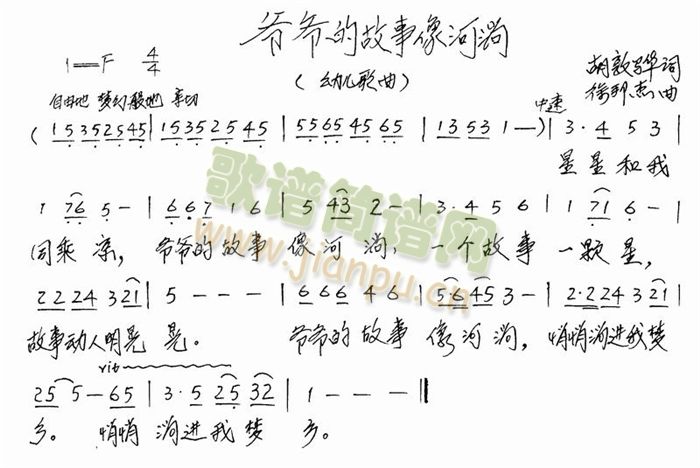 爷爷的故事像河淌
1=F 4/4
(幼儿歌曲)
胡敦骅词
徐邦杰曲
自由地 梦幻般地 亲切
中速
(15352545|15352545|55654565|13531—)|3·453|
星星和我
1765—|667 16|5432—|3·456|1716—|
同乘凉,爷爷的故事像河淌,一个故事一颗星,
2224321|5———|66646|56453—|2·224321|
故事动人明晃晃。爷爷的故事像河淌,悄悄淌进我梦
rit
255—65|3·52532|1———‖
乡。悄悄淌进我梦乡。
歌谱简谱网
www.jianpu.cn